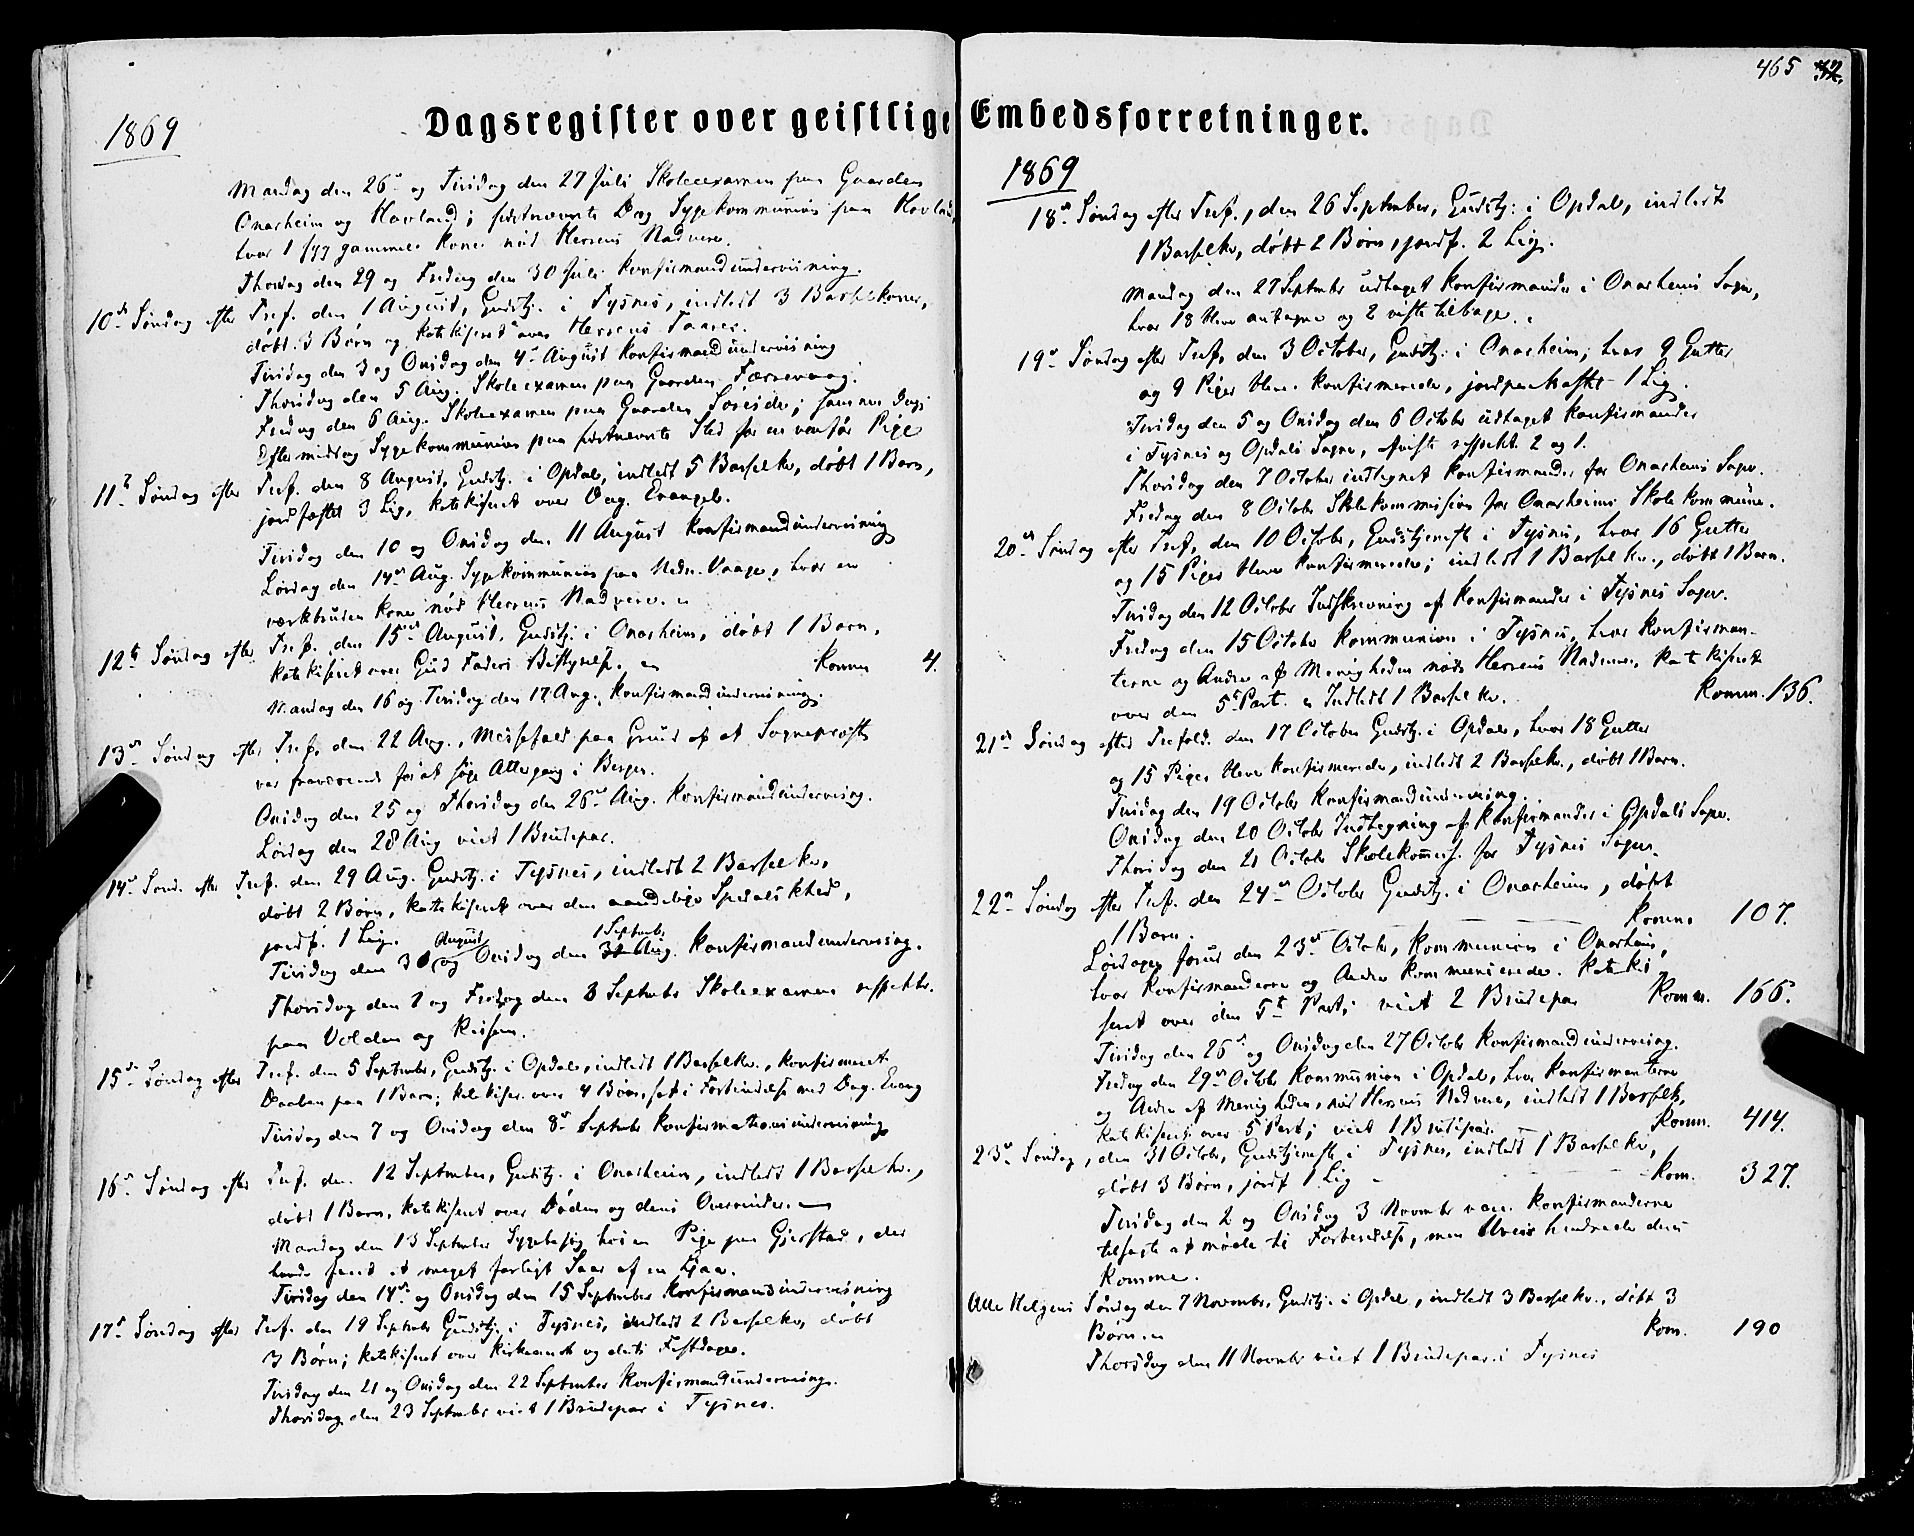 465 42.
Dagsregister over geistlige Embedsforretninger.
1869
Mandag den 26de og Tirsdag den 27 Juli Skoleexamen paa Gaarden
Onarheim og Hovland; førstnævnte Dag Sygekommunion paa Hovland,
hvor 1 syg gammel Kone nød Herrens Nadvere.
Thorsdag den 29 og Fredag den 30 Juli Konfirmandundervisning.
10de Søndag efter Tref. den 1 August, Gudstj. i Tysnes, indledt 3 Barselkoner,
døbt 3 Børn og katekiseret over Herrens Taarer.
Tirsdag den 3 og Onsdag den 4de August Konfirmandundervisning
Thorsdag den 5 Aug. Skoleexamen paa Gaarden Færnevaag.
Fredag den 6 Aug. Skoleexamen paa Gaarden Søreide; samme Dags
Eftermiddag Sygekommunion paa førstnævnte Sted for en vanfør Pige
11te Søndag efter Tref. den 8 August, Gudstj. i Opdal, indledt 5 Barselko, døbt 1 Barn,
jordfæstet 3 Lig, katekiseret over Dag. Evangel.
Tirsdag den 10 og Onsdag den 11 August Konfirmandundervisning
Lørdag den 14de Aug. Sygekommunion paa Nedr. Vaage, hvor en
værkbruden Kone nød Herrens Nadvere.
12te Søndag efter Tref. den 15de August, Gudstj. i Onarheim, døbt 1 Barn,
katekiseret over Gud Faders Bestyrelse. Komm 4.
Mandag den 16 og Tirsdag den 17 Aug. Konfirmandundervisning.
13de Søndag efter Tref. den 22 Aug., Messefald paa Grund af at Sognepræsten
var fraværende for at søge Lægehjælp i Bergen.
Onsdag den 25 og Thorsdag den 26de Aug. Konfirmandundervisning.
Lørdag den 28 Aug viet 1 Brudepar.
14de Sønd. efter Tref. den 29 Aug. Gudstj. i Tysnes, indledt 2 Barselko,
døbt 2 Børn, katekiseret over den aandelige Spedalskhed,
jordf. 1 Lig.
Tirsdag den 31 August og Onsdag den 1 Septemb. Konfirmandundervisning.
Thorsdag den 2 og Fredag den 3 Septembr Skoleexamen respektiv.
paa Volden og Reisen.
15de Søndag efter Tref. den 5 September, Gudstj. i Opdal, indledt 1 Barselko., konfirmeret
Daaben paa 1 Barn; katekiser. over 4 Børn, sat i Forbindelse med Dag. Evang
Tirsdag den 7 og Onsdag den 8de Septembr Konfirmationsundervisning
16de Søndag efter Tref. den 12 September, Gudstj. i Onarheim, indledt 1 Barselko.,
døbt 1 Barn, katekiseret over Døden og dens Overvinder.
Mandag den 13 September Sygebesøg hos en Pige paa Gjerstad, der
havde faaet et meget farligt Saar af en Ljaa.
Tirsdag den 14de og Onsdag den 15 September Konfirmandundervisning
17de Søndag efter Tref. den 19 Septembr Gudstj. i Tysnes, indledt 2 Barselko, døbt
3 Børn; katekiseret over Kirkeaaret og dets Festdage.
Tirsdag den 21 og Onsdag den 22 September Konfirmandundervisning.
Thorsdag den 23 September viet 1 Brudepar i Tysnes.
1869
18de Søndag efter Tref., den 26 September, Gudstj. i Opdal, indledt
1 Barselko, døbt 2 Børn, jordf. 2 Lig.
Mandag den 27 Septembr udtaget Konfirmander i Onarheims Sogn,
hvor 18 bleve antagne og 2 viste tilbage.
19de Søndag efter Tref, den 3 October, Gudstj. i Onarheim, hvor 9 Gutter
og 9 Piger bleve konfirmerede, jordpaakastet 1 Lig.
Tirsdag den 5 og Onsdag den 6 October udtaget Konfirmander
i Tysnes og Opdals Sogne, afviste respekt. 2 og 1.
Thorsdag den 7 October indtegnet Konfirmander for Onarheims Sogn.
Fredag den 8 October Skolekommission for Onarheims Skolekommune.
20de Søndag efter Tref, den 10 October, Gudstjeneste i Tysnes, hvor 16 Gutter
og 15 Piger bleve konfirmerede; indledt 1 Barselko., døbt 1 Barn.
Tirsdag den 12 October Indskrivning af Konfirmander i Tysnes Sogn.
Fredag den 15 October Kommunion i Tysnes, hvor Konfirman-
terne og Andre af Menigheden nød Herrens Nadvere, katekiseret
over den 5te Part. Indledt 1 Barselko. Komm. 136.
21de Søndag efter Trefold. den 17 October Gudstj. i Opdal, hvor 18 Gutter
og 15 Piger bleve konfirmerede, indledt 2 Barselko., døbt 1 Barn.
Tirsdag den 19 October Konfirmandundervisning.
Onsdag den 20 October Indtegning af Konfirmander i Opdals Sogn.
Thorsdag den 21 Octobr Skolekommiss. for Tysnes Sogn.
22de Søndag efter Tref. den 24de October Gudstj. i Onarheim, døbt
1 Barn. Komm. 107.
Lørdagen forud den 23de Octobr, Kommunion i Onarheim,
hvor Konfirmanderne og Andre kommunicerede. Kateki
seret over den 5te Part; viet 2 Brudepar Komm. 166.
Tirsdag den 26de og Onsdag den 27 Octobr Konfirmandundervisning.
Fredag den 29de Octobr Kommunion i Opdal, hvor Konfirmanterne
og Andre af Menigheden, nød Herrens Nadvere, indledt 1 Barselk.
katekiseret over 5 Part; viet 1 Brudepar. Komm. 414.
23de Søndag, den 31 Octobr, Gudstjeneste i Tysnes, indledt 1 Barselko,
døbt 3 Børn, jordf 1 Lig Kom. 327.
Tirsdag den 2 og Onsdag 3 Novembr vare Konfirmanderne
tilsagte at møde til Forberedelse, men Uveir hindrede deres
Komme.
Alle Helgens Søndag den 7 Novembr, Gudstj. i Opdal, indledt 3 Barselko., døbt 3
Børn. Kom. 190
Thorsdag den 11 Novembr viet 1 Brudepar i Tysnes